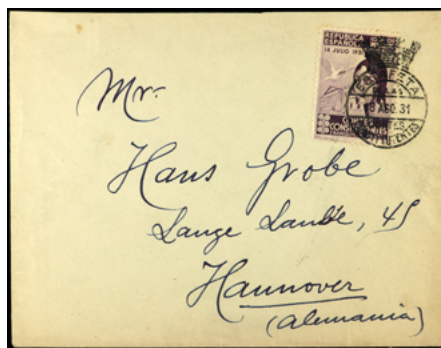 REPUBLICA
ESPAÑOLA
14 JULIO 1931
CORTES
ESTAFETA
8 AGO 31
Mr.
Hans Grobe
Lange Laube, 45
Hannover
(Alemania)